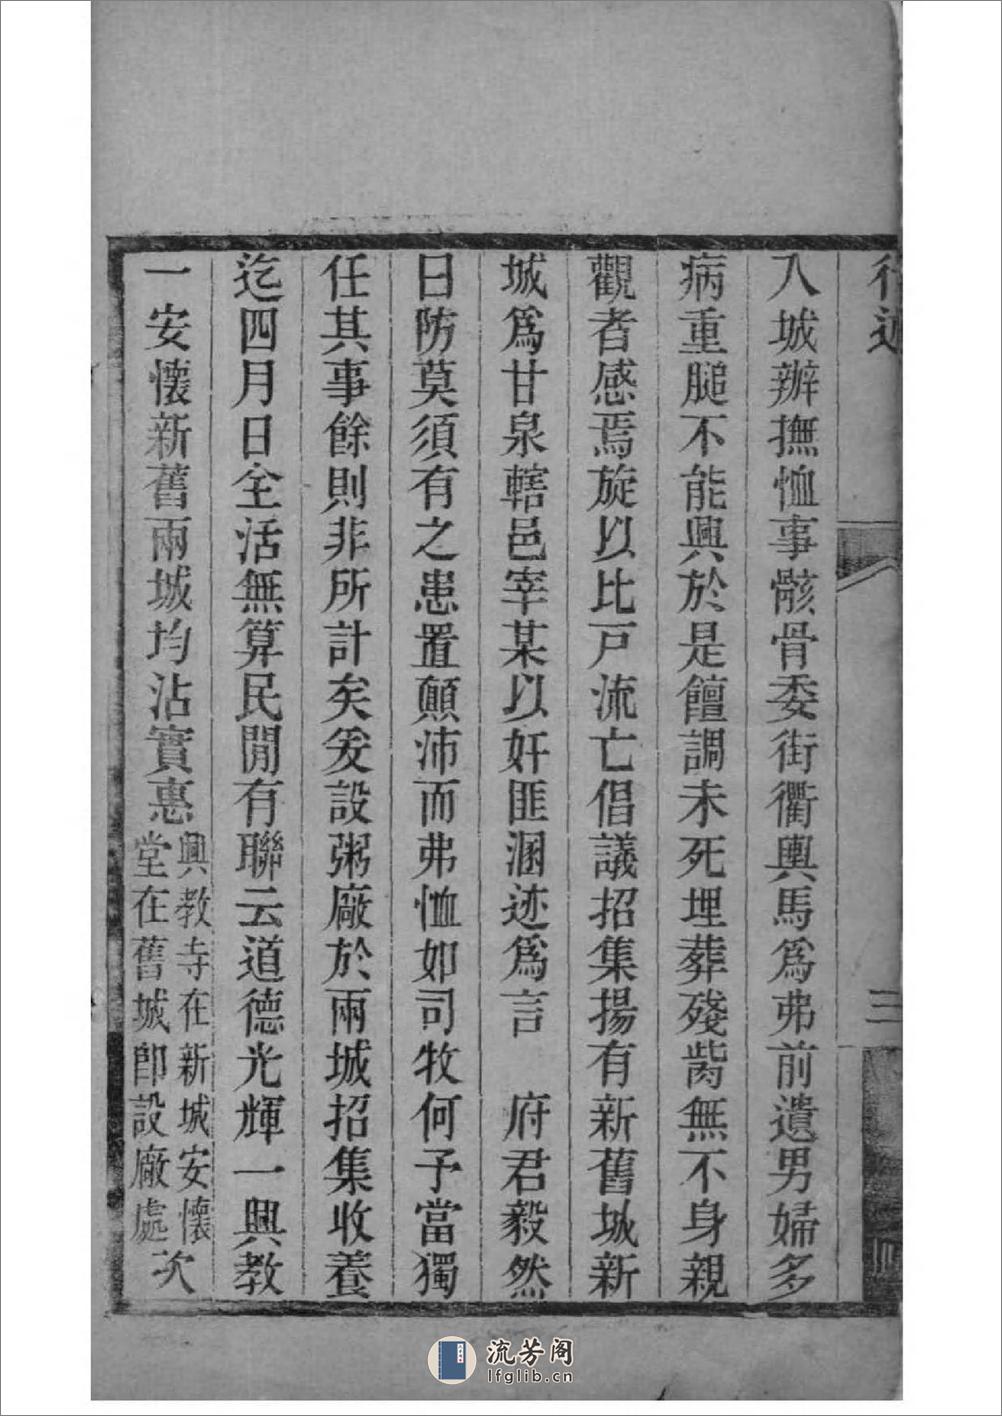 行述
三
入城辦撫恤事骸骨委街衢輿馬爲弗前遺男婦多
病重膇不能興於是饘調未死埋葬殘胔無不身親
觀者感焉旋以比戸流亡倡議招集揚有新舊城新
城爲甘泉轄邑宰某以奸匪溷迹爲言　府君毅然
曰防莫須有之患置顛沛而弗恤如司牧何予當獨
任其事餘則非所計矣爰設粥廠於兩城招集收養
迄四月日全活無算民間有聯云道德光輝一興教
一安懷新舊兩城均沾實惠興教寺在新城安懷堂在舊城卽設廠處次
流芳阁
lfglib.cn